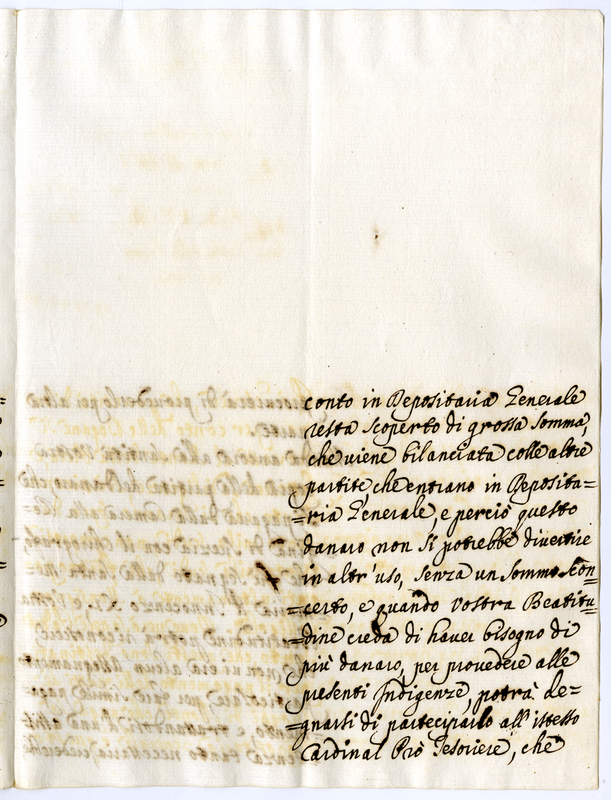 conto in Depositaria Generale
resta scoperto di grossa somma,
che viene bilanciata colle altre
partite che entrano in Deposita=
=ria Generale, e perciò questo
danaro non si potrebbe divertire
in altr'uso, senza un sommo scon=
=certo, e quando Vostra Beatitu=
=dine creda di haver bisogno di
più danaro, per provedere alle
presenti Indigenze, potrà de=
=gnarsi di parteciparlo all'istesso
Cardinal Prò Tesoriere, che